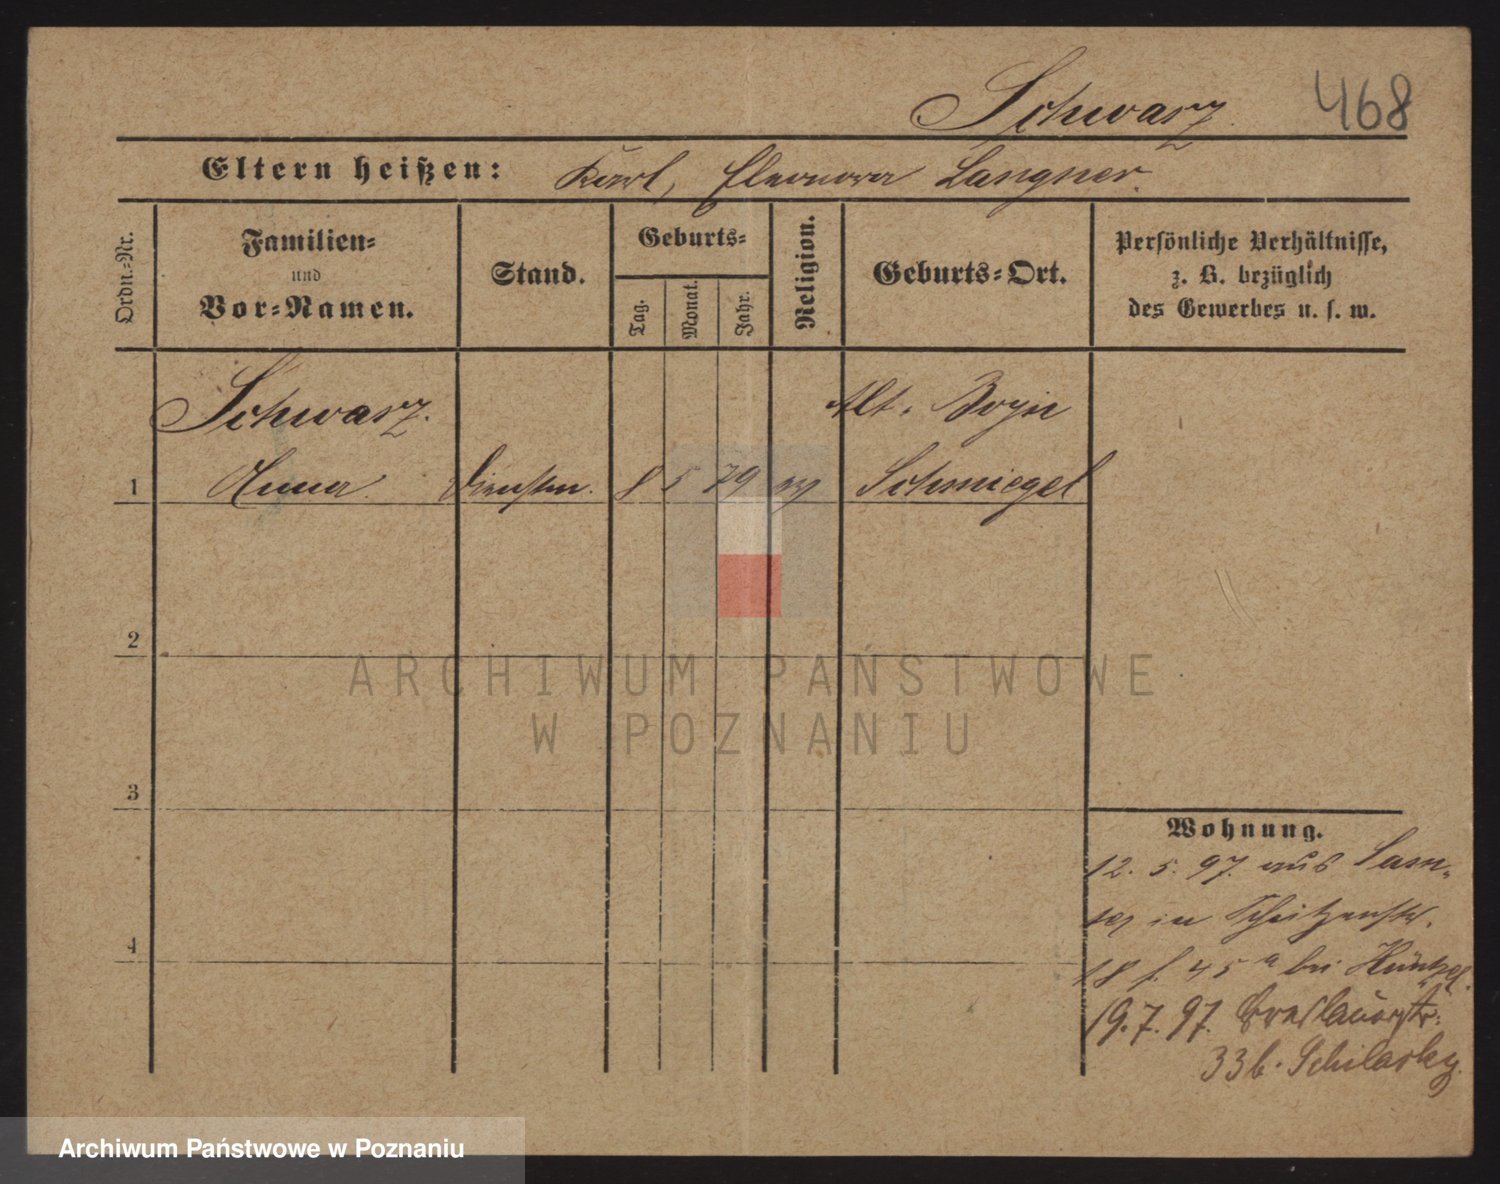 Schwarz
468
Eltern heißen: Karl, Eleonora Langner.
Ordn.-Nr.
Familien-
und
Vor-Namen.
Stand.
Geburts-
Tag.
Monat.
Jahr.
Religion.
Geburts-Ort.
Persönliche Verhältnisse,
z. B. bezüglich
des Gewerbes u. s. w.
Schwarz.
Alt-Boyn
1 Anna Dienstm. 8 5 79 Schmiegel
2
3
4
Wohnung.
12. 5. 97. aus Sam-
ter in Schützenstr.
18 b. 45 a bei
19. 7. 97. Breslauerstr.
33 b. Schilasky.
ARCHIWUM PAŃSTWOWE
W POZNANIU
Archiwum Państwowe w Poznaniu